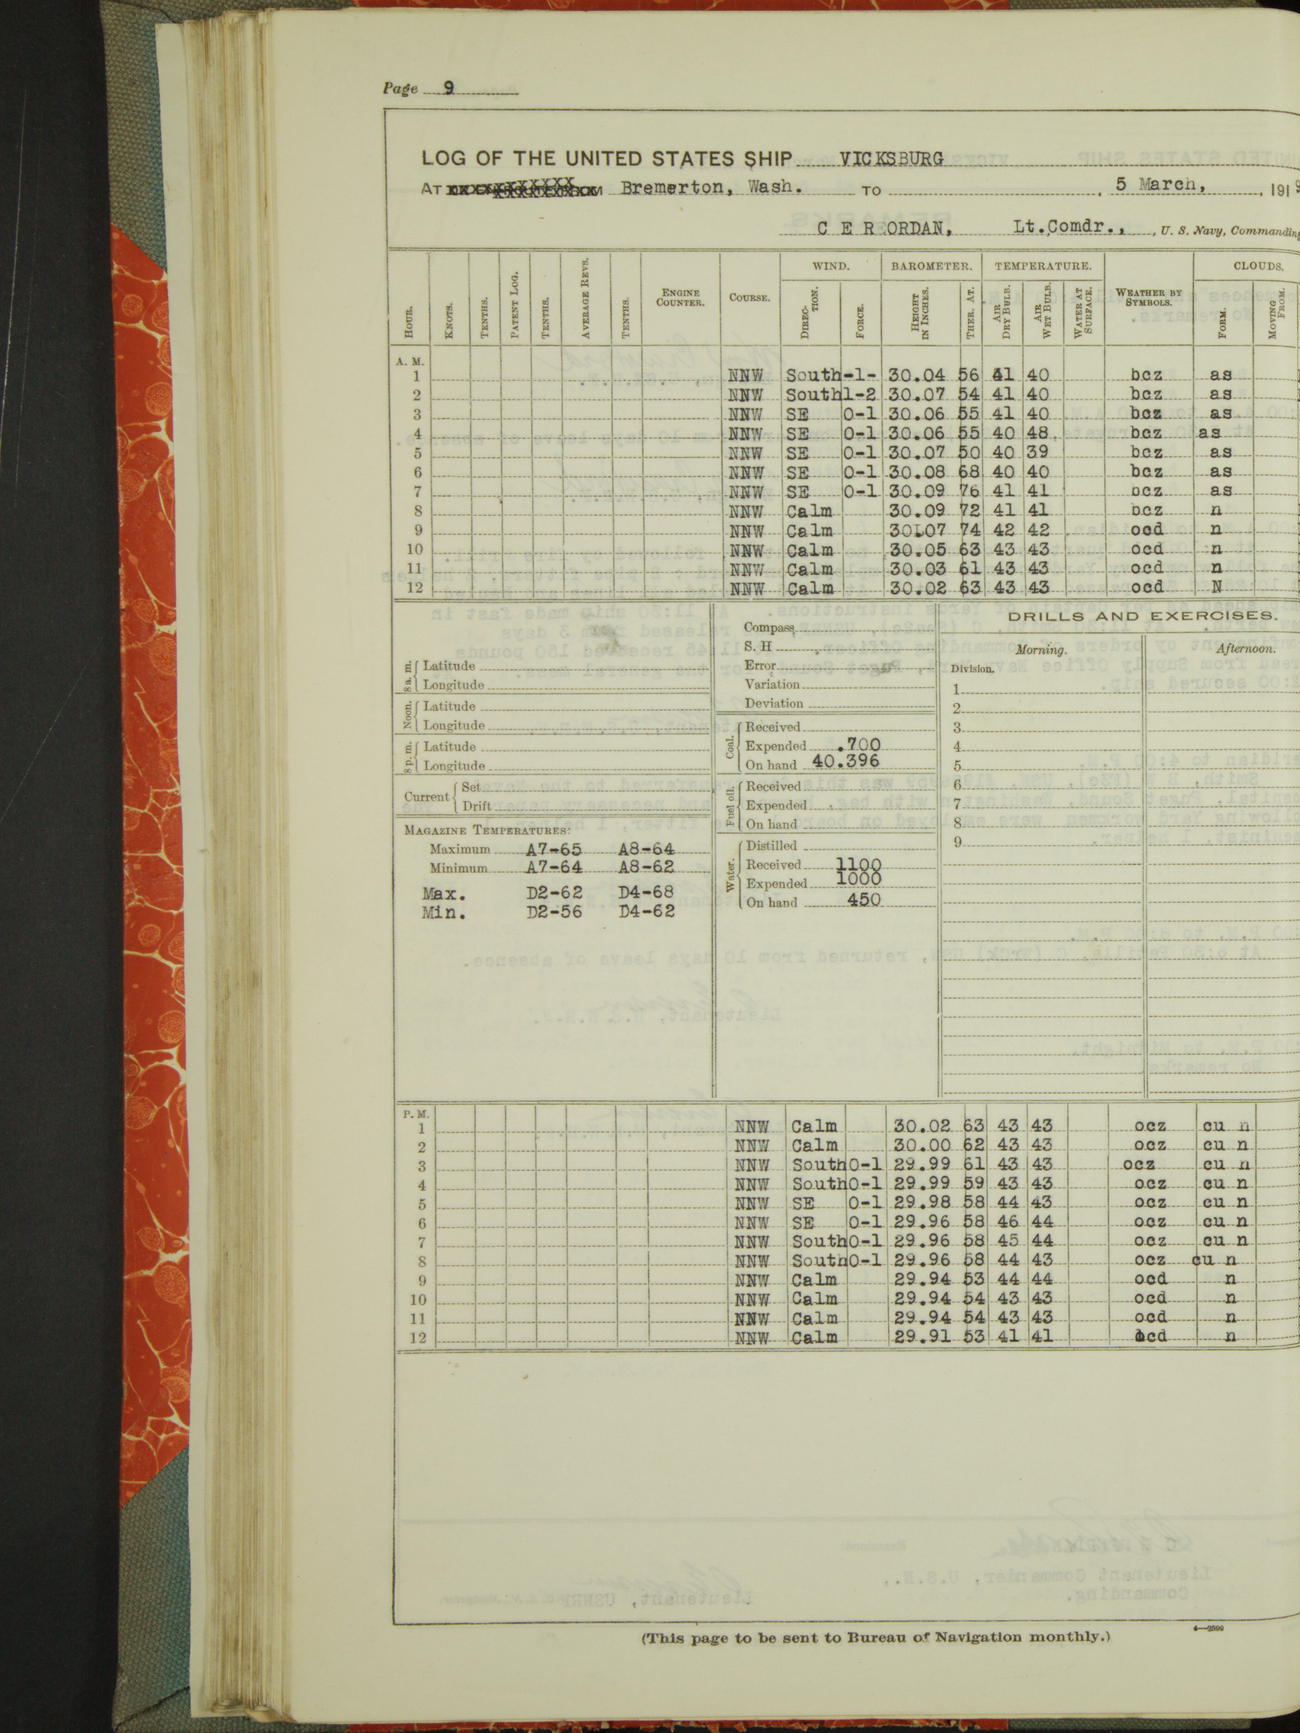 Page 9
LOG OF THE UNITED STATES SHIP VICKSBURG
AT Bremerton, Wash. TO , 5 March, , 191
C E R ORDAN, Lt.Comdr., , U. S. Navy, Commanding
WIND. BAROMETER. TEMPERATURE. CLOUDS.
HOUR. KNOTS. TENTHS. PATENT LOG. TENTHS. AVERAGE REVS. TENTHS. ENGINE COUNTER. COURSE. DIREC-TION. FORCE. HEIGHT IN INCHES. THER. AT. AIR DRY BULB. AIR WET BULB. WATER AT SURFACE. WEATHER BY SYMBOLS. FORM. MOVING FROM.
A. M.
1 NNW South -1- 30.04 56 41 40 bcz as
2 NNW South 1-2 30.07 54 41 40 bcz as
3 NNW SE 0-1 30.06 55 41 40 bcz as
4 NNW SE 0-1 30.06 55 40 48 bcz as
5 NNW SE 0-1 30.07 50 40 39 bcz as
6 NNW SE 0-1 30.08 68 40 40 bcz as
7 NNW SE 0-1 30.09 76 41 41 ocz as
8 NNW Calm 30.09 72 41 41 ocz n
9 NNW Calm 30L07 74 42 42 ocd n
10 NNW Calm 30.05 63 43 43 ocd n
11 NNW Calm 30.03 61 43 43 ocd n
12 NNW Calm 30.02 63 43 43 ocd N
DRILLS AND EXERCISES.
Morning. Afternoon.
Division.
1
2
3
4
5
6
7
8
9
8 a. m. Latitude
Longitude
Noon. Latitude
Longitude
8 p. m. Latitude
Longitude
Current Set
Drift
MAGAZINE TEMPERATURES:
Maximum A7-65 A8-64
Minimum A7-64 A8-62
Max. D2-62 D4-68
Min. D2-56 D4-62
Compass
S. H
Error
Variation
Deviation
Coal. Received
Expended .700
On hand 40.396
Fuel oil. Received
Expended
On hand
Water. Distilled
Received 1100
Expended 1000
On hand 450
P. M.
1 NNW Calm 30.02 63 43 43 ocz cu n
2 NNW Calm 30.00 62 43 43 ocz cu n
3 NNW South 0-1 29.99 61 43 43 ocz cu n
4 NNW South 0-1 29.99 59 43 43 ocz cu n
5 NNW SE 0-1 29.98 58 44 43 ocz cu n
6 NNW SE 0-1 29.96 58 46 44 ocz cu n
7 NNW South 0-1 29.96 58 45 44 ocz cu n
8 NNW South 0-1 29.96 58 44 43 ocz cu n
9 NNW Calm 29.94 53 44 44 ocd n
10 NNW Calm 29.94 54 43 43 ocd n
11 NNW Calm 29.94 54 43 43 ocd n
12 NNW Calm 29.91 53 41 41 n
(This page to be sent to Bureau of Navigation monthly.)